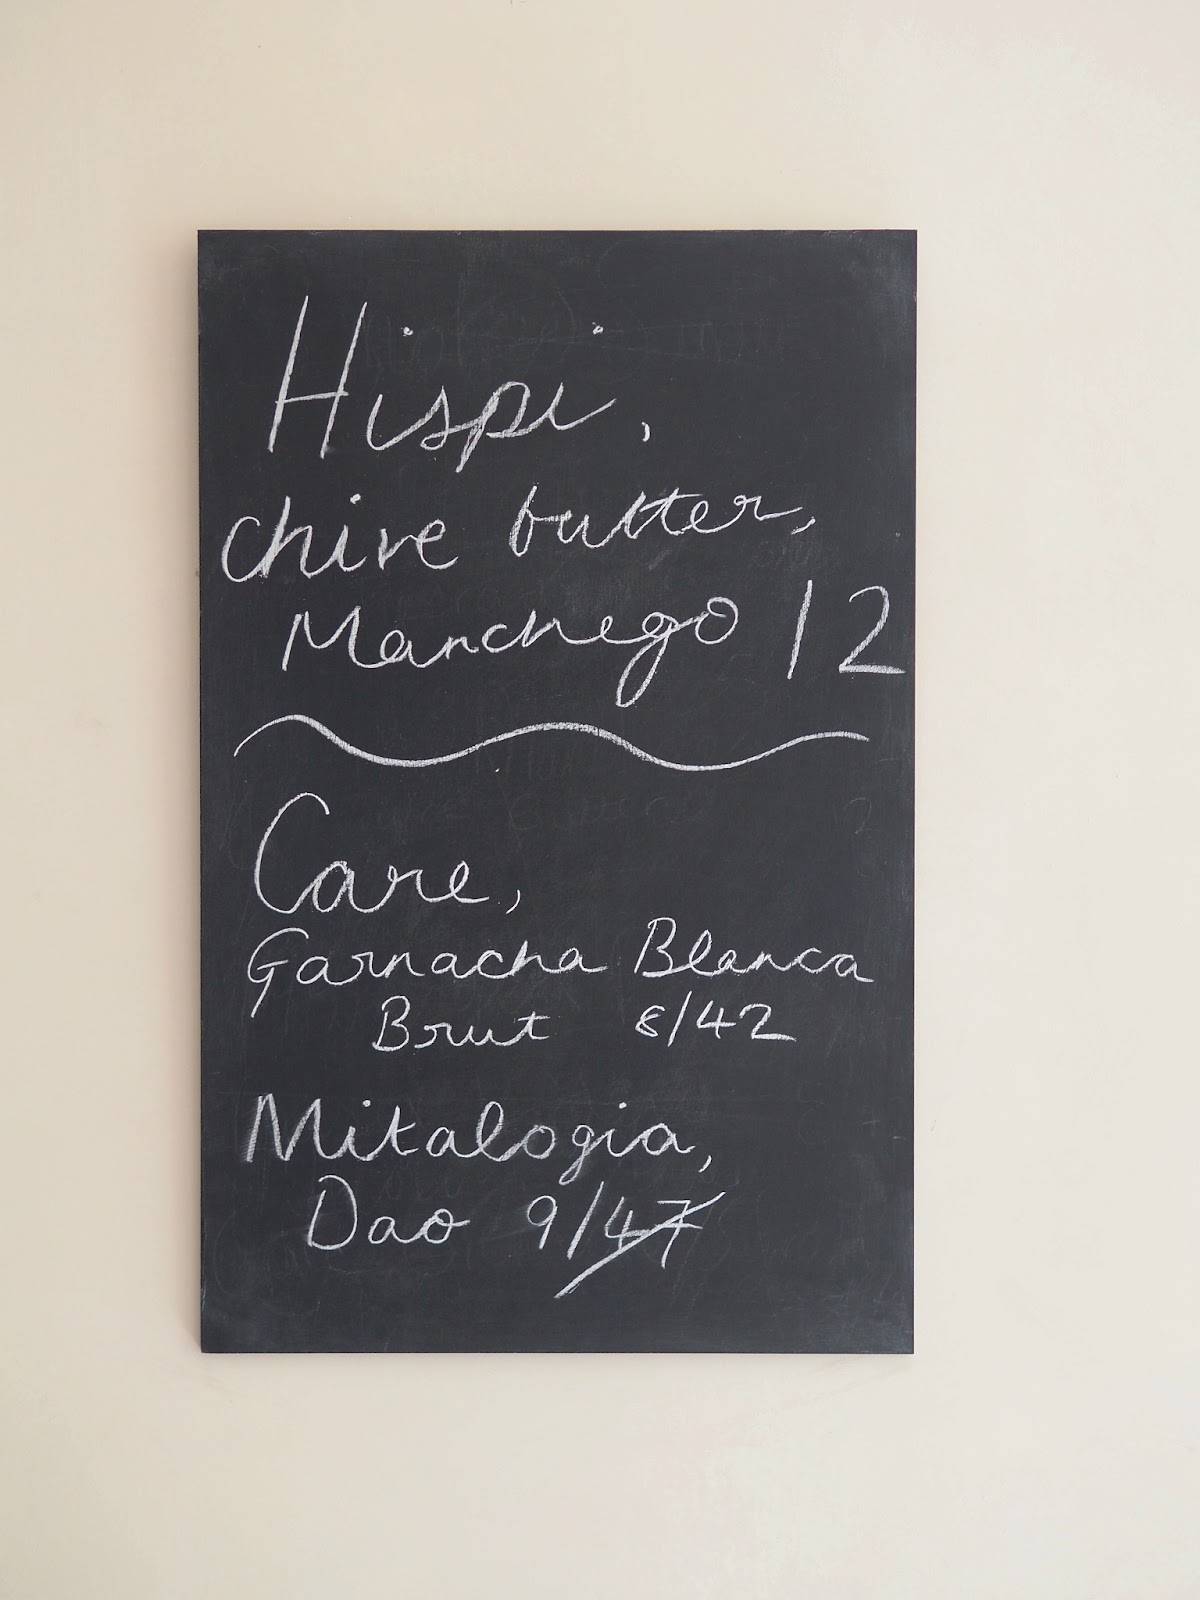 Hispi,
chive butter,
Manchego 12
Care,
Garnacha Blanca
Brut 8/42
Mitalogia,
Dao 9/47